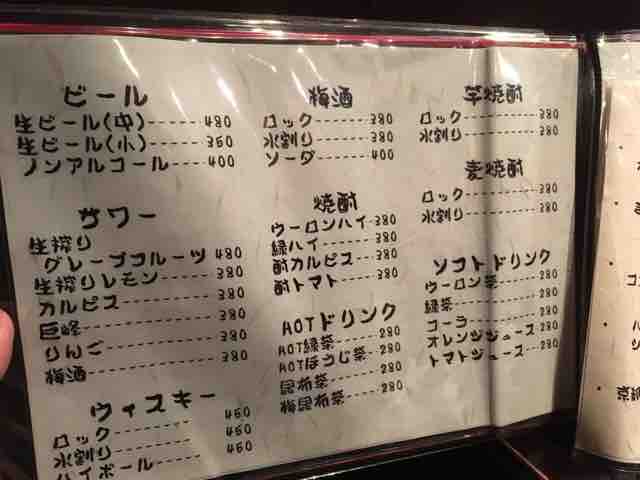 ビール
生ビール(中)-----480
生ビール(小)-----350
ノンアルコール-----400
サワー
生搾り
グレープフルーツ 480
生搾りレモン-----380
カルピス-----380
巨峰-----380
りんご-----380
梅酒-----380
ウィスキー
ロック-----450
水割り-----450
ハイボール-----450
梅酒
ロック-----380
水割り-----380
ソーダ-----400
焼酎
ウーロンハイ-380
緑ハイ-----380
酎カルピス--380
酎トマト----380
HOTドリンク
HOT緑茶-----280
HOTほうじ茶--280
昆布茶-----280
梅昆布茶----280
芋焼酎
ロック-----380
水割り-----380
麦焼酎
ロック-----380
水割り-----380
ソフトドリンク
ウーロン茶----280
緑茶-----280
コーラ-----280
オレンジジュース--280
トマトジュース---280